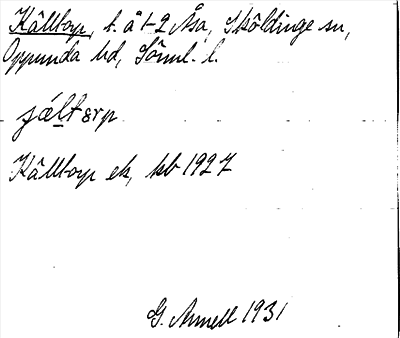 Källtorp, t. å 1-2 Åsa, Sköldinge sn,
Oppunda hd, Söml. l.
Källtorp ek, kb 1927
G. Annell 1931